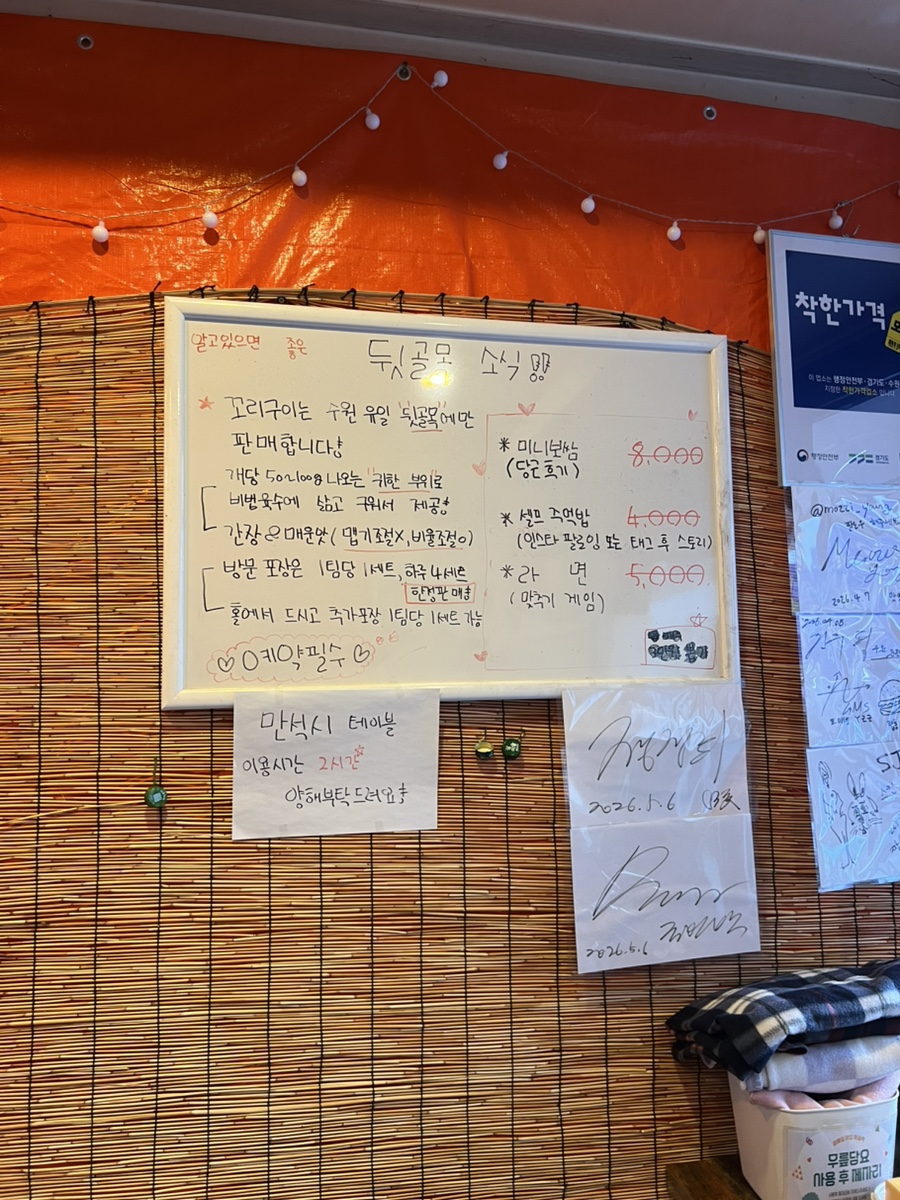 알고있으면 좋은
뒷골목 소식
꼬리구이는 수원 유일 '뒷골목'에만
판매합니다!
개당 50~100g 나오는 '귀한 부위'로
비법육수에 삶고 구워서 제공!
간장 & 매운맛 (맵기조절X, 비율조절O)
방문 포장은 1팀당 1세트, 하루 4세트
한정판매!
홀에서 드시고 추가포장 1팀당 1세트 가능
예약필수
* 미니보쌈 8,000
(당근 후기)
* 셀프 주먹밥 4,000
(인스타 팔로잉 또는 태그 후 스토리)
* 라면 5,000
(맞추기 게임)
만석시 테이블
이용시간 2시간
양해부탁드려요!
2026.5.6
2026.5.1
착한가격
이 업소는 행정안전부·경기도·수원
지정한 착한가격업소 입니다
행정안전부 경기도
2026.4.7
무릎담요
사용 후 제자리